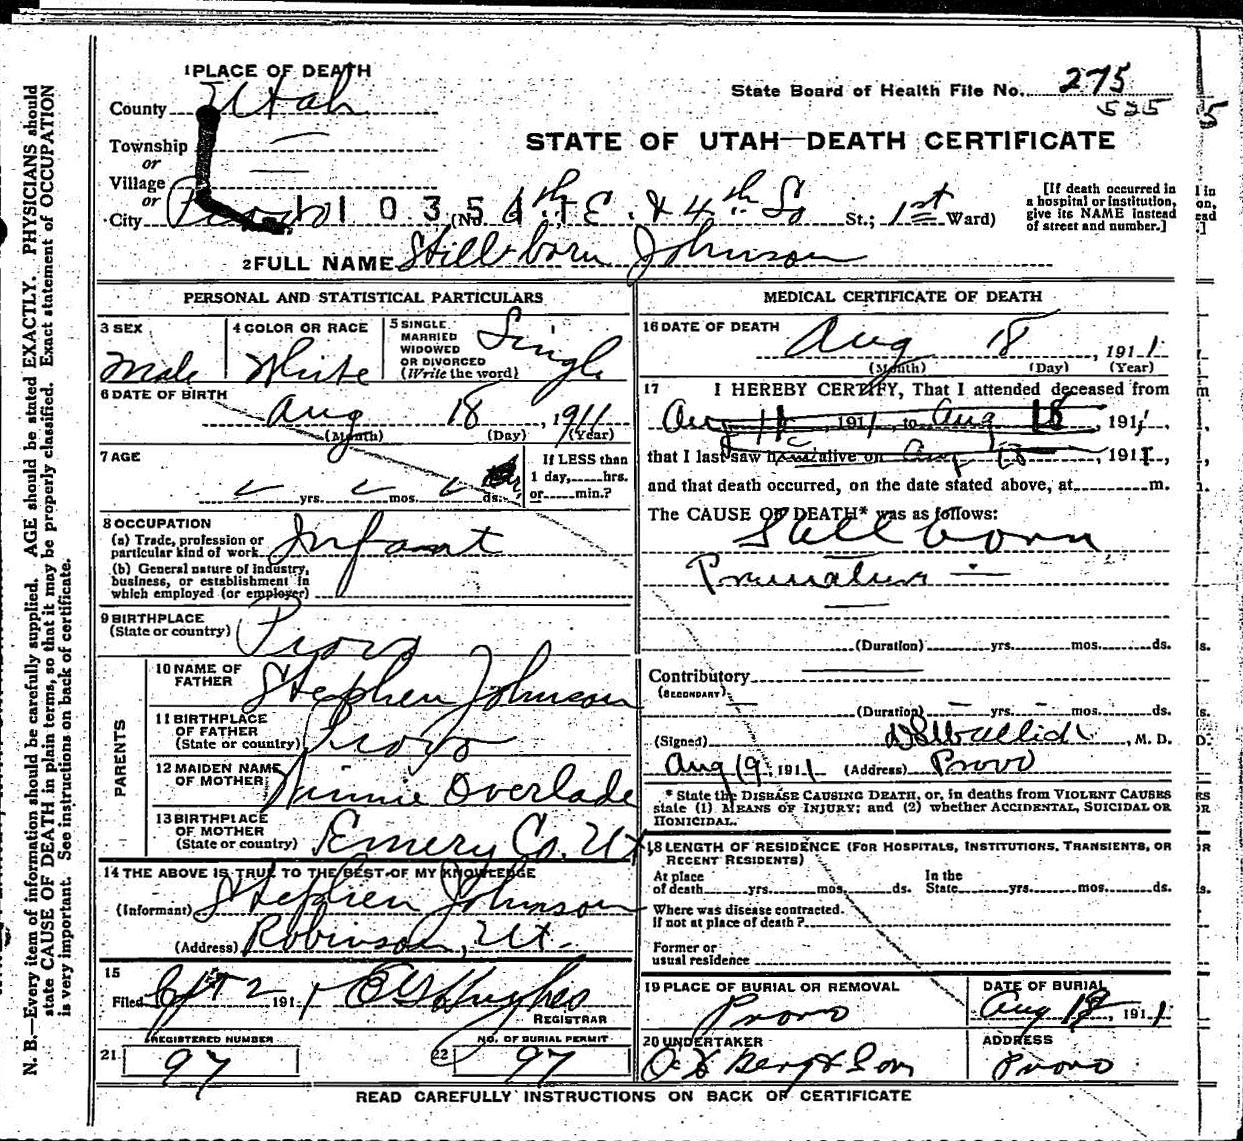 1 PLACE OF DEATH
County Utah
State Board of Health File No. 275
525
Township
or
Village
or
City Provo
STATE OF UTAH—DEATH CERTIFICATE
1103541
(No. 6th E. & 4th So St.; 1st Ward)
[If death occurred in a hospital or institution, give its NAME instead of street and number.]
2 FULL NAME Still-born Johnson
PERSONAL AND STATISTICAL PARTICULARS
3 SEX Male
4 COLOR OR RACE White
5 SINGLE. MARRIED WIDOWED OR DIVORCED (Write the word) Single
6 DATE OF BIRTH Aug 18, 1911
(Month) (Day) (Year)
7 AGE
yrs. mos. ds.
If LESS than 1 day, hrs. or min.?
8 OCCUPATION
(a) Trade, profession or particular kind of work Infant
(b) General nature of industry, business, or establishment in which employed (or employer)
9 BIRTHPLACE (State or country) Provo
PARENTS
10 NAME OF FATHER Stephen Johnson
11 BIRTHPLACE OF FATHER (State or country) Provo
12 MAIDEN NAME OF MOTHER Minnie Overlade
13 BIRTHPLACE OF MOTHER (State or country) Emery Co. Ut
14 THE ABOVE IS TRUE TO THE BEST OF MY KNOWLEDGE
(Informant) Stephen Johnson
(Address) Robinson, Ut.
15
Filed Sept 2 1911 Hughes
REGISTRAR
21 REGISTERED NUMBER 97
22 NO. OF BURIAL PERMIT 97
MEDICAL CERTIFICATE OF DEATH
16 DATE OF DEATH
Aug 18, 1911
(Month) (Day) (Year)
17 I HEREBY CERTIFY, That I attended deceased from
Aug 18, 1911, to Aug 18, 1911,
that I last saw him alive on Aug 18, 1911,
and that death occurred, on the date stated above, at m.
The CAUSE OF DEATH* was as follows:
Still born
Premature
(Duration) yrs. mos. ds.
Contributory
(SECONDARY)
(Duration) yrs. mos. ds.
(Signed) , M. D.
Aug 19, 1911 (Address) Provo
* State the DISEASE CAUSING DEATH, or, in deaths from VIOLENT CAUSES state (1) MEANS OF INJURY; and (2) whether ACCIDENTAL, SUICIDAL OR HOMICIDAL.
18 LENGTH OF RESIDENCE (FOR HOSPITALS, INSTITUTIONS. TRANSIENTS, OR RECENT RESIDENTS)
At place of death yrs. mos. ds. In the State yrs. mos. ds.
Where was disease contracted. If not at place of death?
Former or usual residence
19 PLACE OF BURIAL OR REMOVAL Provo
DATE OF BURIAL Aug 18, 1911
20 UNDERTAKER Berg & Son
ADDRESS Provo
READ CAREFULLY INSTRUCTIONS ON BACK OF CERTIFICATE
N. B.—Every item of information should be carefully supplied. AGE should be stated EXACTLY. PHYSICIANS should
state CAUSE OF DEATH in plain terms, so that it may be properly classified. Exact statement of OCCUPATION
is very important. See instructions on back of certificate.